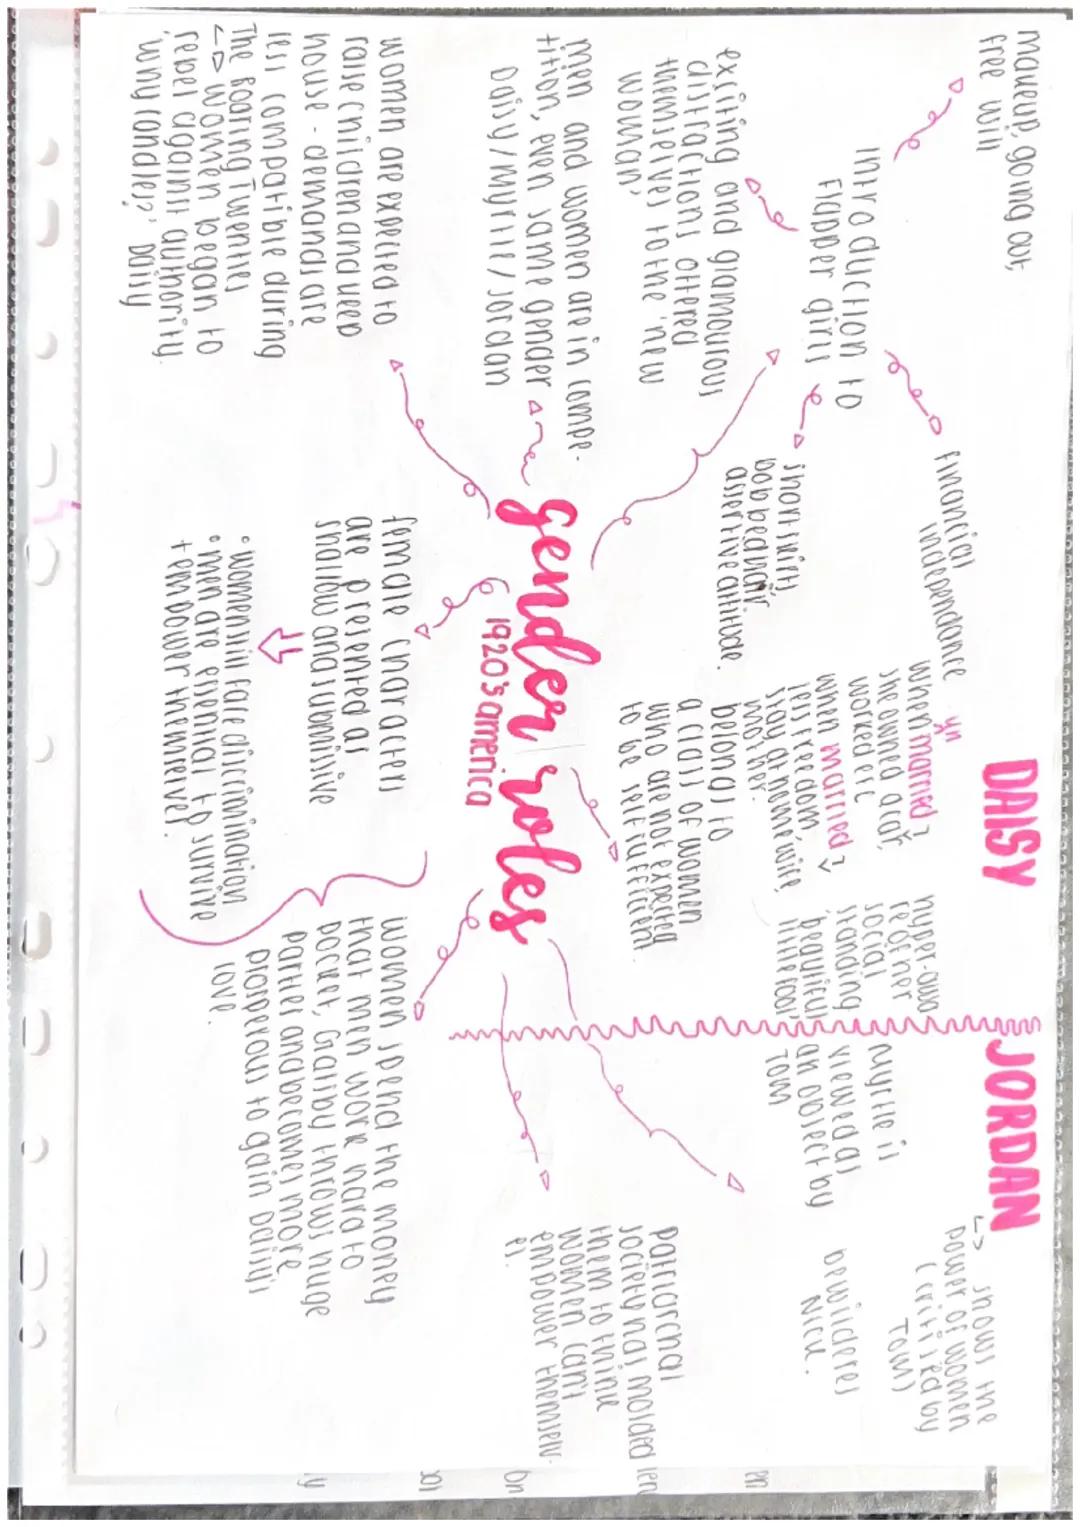 makeup, going out,
free will
introduction to
flapper girls
exsiting and glamourous
distractions offered
themselves to the 'new
woman'
financial
independance
short skirts
bobbed hair
assertive attitude.
men and women are in compe-
tition, even same gender
Daisy/Myrtle/Jordan
women are expected to
raise children and keep
house - demands are
less compatible during
The Roaring Twenties
↳ women began to
rebel against authority.
'why candles?' Daisy
gender roles
1920's america
female characters
are presented as
shallow and submissive
• women still face discrimination
• men are essential to survive
+ empower themselves.
DAISY
when married?
she owned a car,
worked etc
when married?
less freedom,
stay at home wife,
mother.
hyper-awa
re of her
social
standing
'beautiful
little fool'
belongs to
a class of women
who are not expected
to be self sufficient.
women spend the money
that men work hard to
pocket, Gatsby throws huge
parties and becomes more
prosperous to gain Daisy's
love.
JORDAN
↳ shows the
power of women
(critised by
Tom)
Myrtle is
viewed as
an object by
Tom
bewilderes
Nick.
patriarchal
society has molded
them to think
women can't
empower themselv-
es.